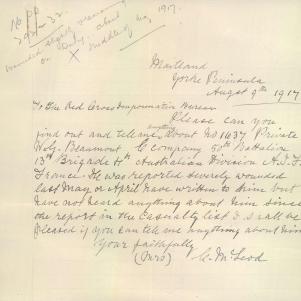 No PP
1917.
wounded slightly remaining
on duty, about
middle of May
X
Maitland
Yorke Peninsula
Augst 9th 1917
To The Red Cross Information Bureau
Please can you
find out and tell me anything about No 1637 Private
Wolg. Beaumont C Company 50th Battalion
13th Brigade 4th Australian Division A.I.F.
France. He was reported severely wounded
last May or April have written to him but
have not heard anything about him since
the report in the Casualty list & I shall be
pleased if you can tell me anything about him
Your faithfully
(Mrs) C. McLeod